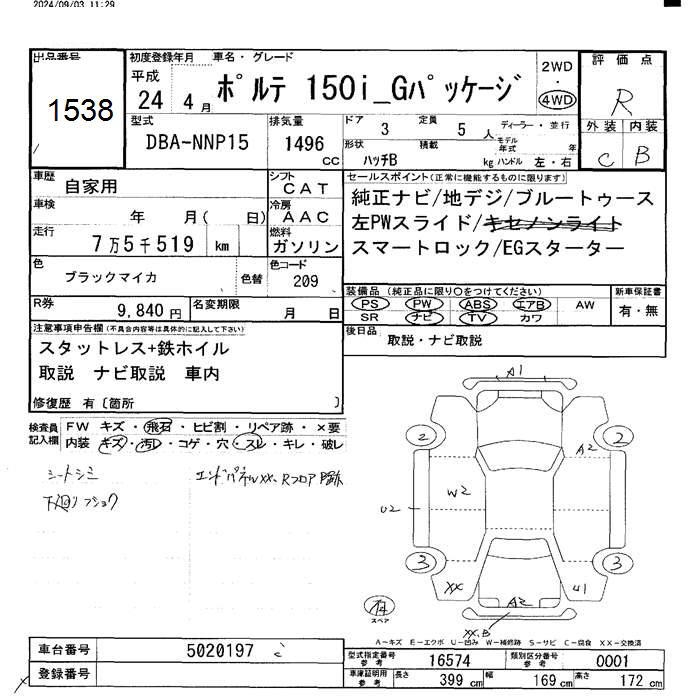 2024/09/03 11:29
出品番号
1538
初度登録年月
車名・グレード
平成
24 4 月
ポルテ 150i_Gパッケージ
2WD
4WD
評価点
R
外装 内装
C B
型式
DBA-NNP15
排気量
1496 CC
ドア 3
定員 5 人
ディーラー・並行
形状
ハッチB
積載 kg
モデル年式 年
ハンドル 左・右
車歴
自家用
シフト
CAT
車検
年 月( 日)
冷房
AAC
走行
7万5千519 km
燃料
ガソリン
色
ブラックマイカ
色替
色コード
209
R券
9,840円
名変期限
月 日
セールスポイント(正常に機能するものに限ります)
純正ナビ/地デジ/ブルートゥース
左PWスライド/キセノンライト
スマートロック/EGスターター
装備品(純正品に限り○をつけてください)
PS PW ABS エアB AW
SR ナビ TV カワ
新車保証書
有・無
後日品
取説・ナビ取説
注意事項申告欄(不具合内容等は具体的に記入して下さい)
スタットレス+鉄ホイル
取説 ナビ取説 車内
修復歴 有〔箇所 〕
検査員記入欄
FW キズ・飛石・ヒビ割・リペア跡・×要
内装 キズ・汚レ・コゲ・穴・スレ・キレ・破レ
シートシミ
下廻リフショク
エンドパネルXX、Rフロア
A1
2
2
A2
W2
U2
3
3
XX
U1
A2
XX,B
有
スペア
A-キズ E-エクボ U-凹み W-補修跡 S-サビ C-腐食 XX-交換済
車台番号
5020197
登録番号
型式指定番号
参考
16574
類別区分番号
参考
0001
車庫証明用
参考
長さ
399 cm
幅
169 cm
高さ
172 cm